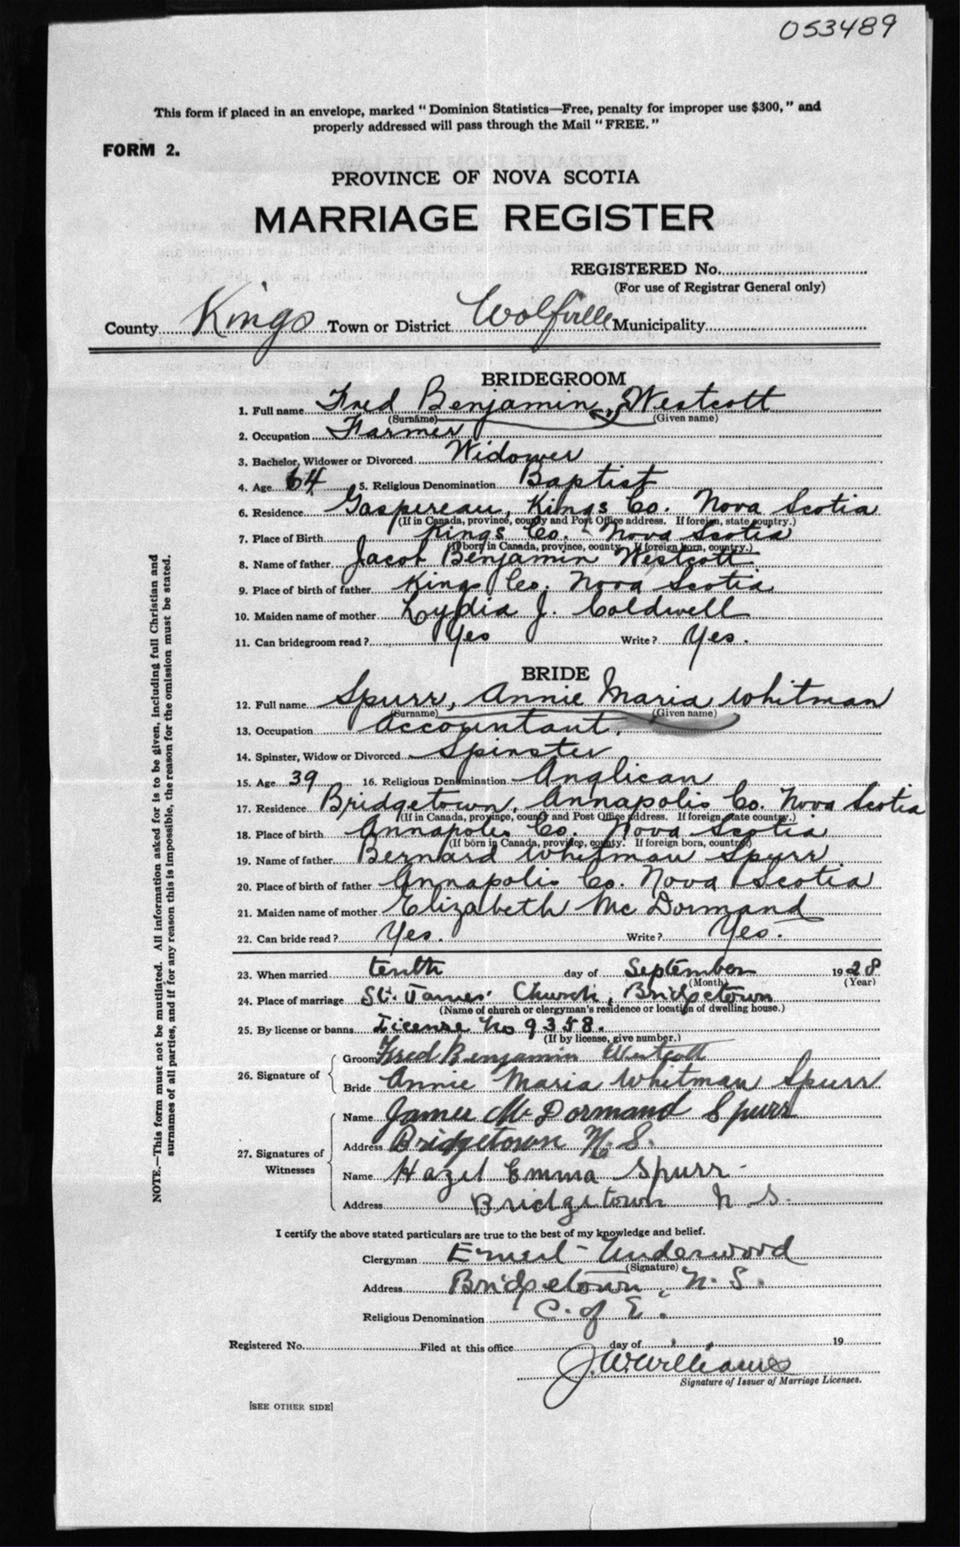 053489
This form if placed in an envelope, marked "Dominion Statistics—Free, penalty for improper use $300," and
properly addressed will pass through the Mail "FREE."
FORM 2.
PROVINCE OF NOVA SCOTIA
MARRIAGE REGISTER
REGISTERED No.
(For use of Registrar General only)
County Kings Town or District Wolfville Municipality
BRIDEGROOM
1. Full name Fred Benjamin, Westcott
(Surname) (Given name)
2. Occupation Farmer
3. Bachelor, Widower or Divorced Widower
4. Age 64 5. Religious Denomination Baptist
6. Residence Gaspereau, Kings Co. Nova Scotia
(If in Canada, province, county and Post Office address. If foreign, state country.)
7. Place of Birth Kings Co. Nova Scotia
(If born in Canada, province, county. If foreign born, country.)
8. Name of father Jacob Benjamin Westcott
9. Place of birth of father Kings Co. Nova Scotia
10. Maiden name of mother Lydia J. Coldwell
11. Can bridegroom read? Yes Write? Yes.
BRIDE
12. Full name Spurr, Annie Maria Whitman
(Surname) (Given name)
13. Occupation Accountant.
14. Spinster, Widow or Divorced Spinster
15. Age 39 16. Religious Denomination Anglican
17. Residence Bridgetown, Annapolis Co. Nova Scotia
(If in Canada, province, county and Post Office address. If foreign state country.)
18. Place of birth Annapolis Co. Nova Scotia
(If born in Canada, province, county. If foreign born, country)
19. Name of father Bernard Whitman Spurr
20. Place of birth of father Annapolis Co. Nova Scotia
21. Maiden name of mother Elizabeth McDormand
22. Can bride read? Yes. Write? Yes.
23. When married tenth day of September 1928
(Month) (Year)
24. Place of marriage St. James' Church, Bridgetown
(Name of church or clergyman's residence or location of dwelling house.)
25. By license or banns License No 9358.
(If by license, give number.)
26. Signature of Groom Fred Benjamin Westcott
Bride Annie Maria Whitman Spurr
27. Signatures of Witnesses Name James McDormand Spurr
Address Bridgetown N.S.
Name Hazel Emma Spurr
Address Bridgetown N S.
I certify the above stated particulars are true to the best of my knowledge and belief.
Clergyman Ernest Underwood
(Signature)
Address Bridgetown, N.S.
Religious Denomination C. of E.
Registered No. Filed at this office day of 19
J.W. Williams
Signature of Issuer of Marriage Licenses.
[SEE OTHER SIDE]
NOTE.—This form must not be mutilated. All information asked for is to be given, including full Christian and
surnames of all parties, and if for any reason this is impossible, the reason for the omission must be stated.